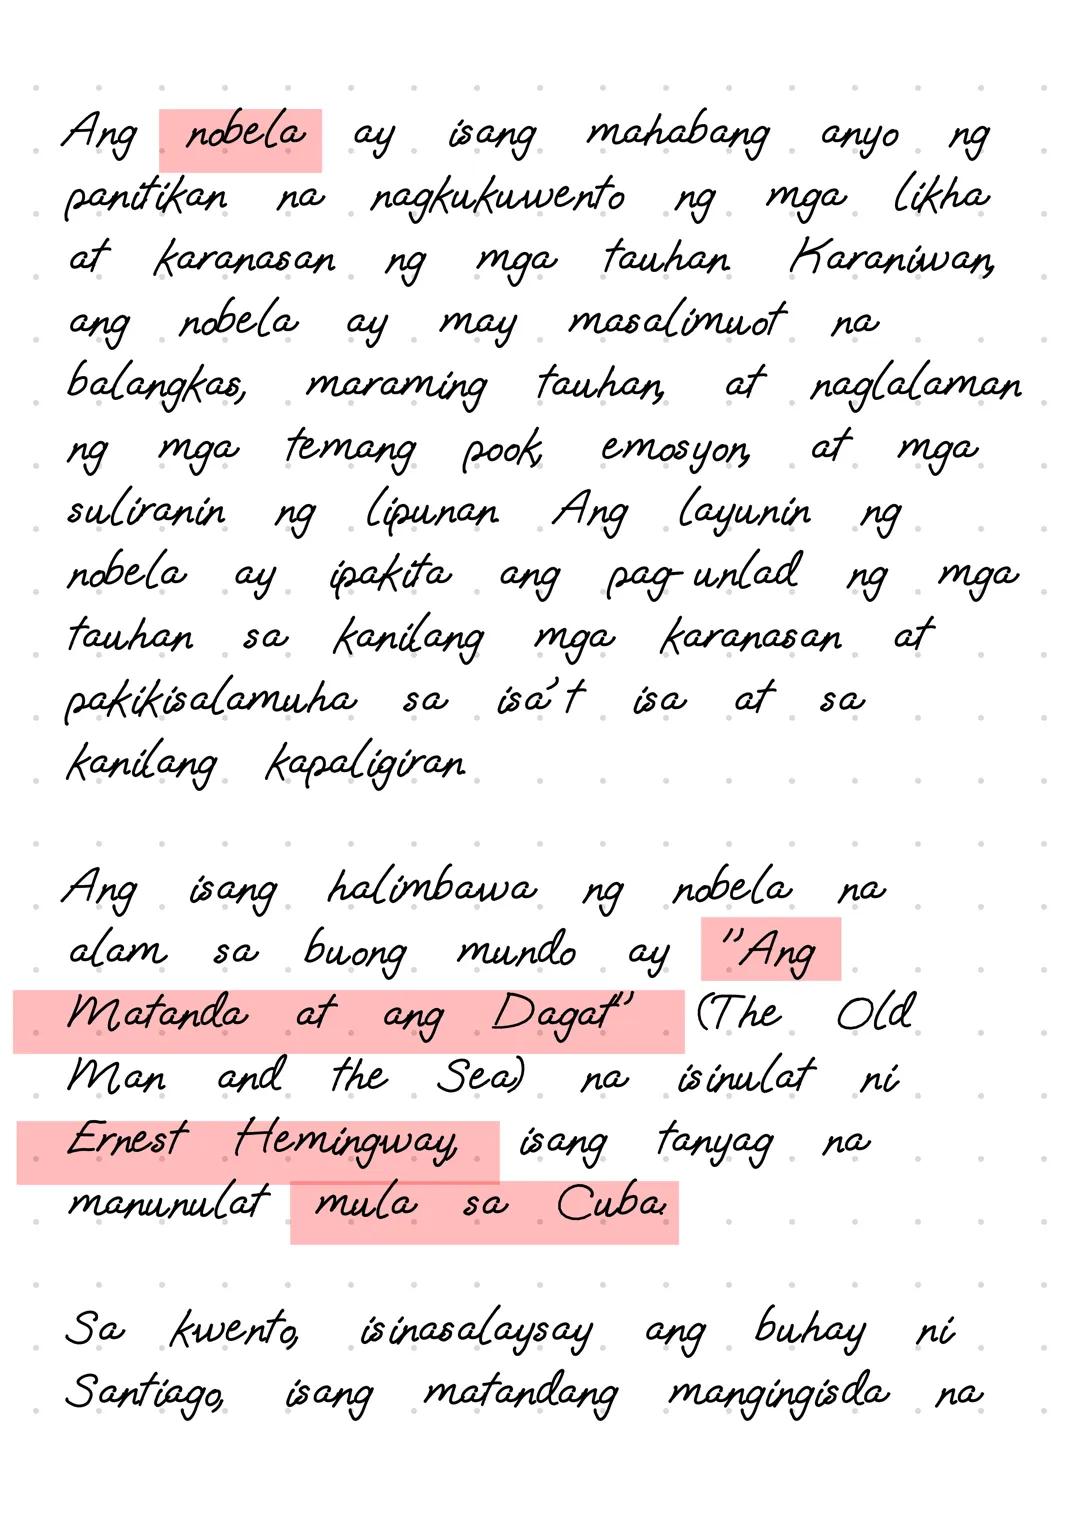 Ang nobela ay isang mahabang anyo ng
panitikan na nagkukuwento ng mga likha
at karanasan ng mga tauhan. Karaniwan,
ang nobela ay may masalimuot na
balangkas, maraming tauhan, at naglalaman
ng mga temang pook, emosyon, at mga
suliranin ng lipunan. Ang layunin ng
nobela ay ipakita ang pag-unlad ng mga
tauhan sa kanilang mga karanasan at
pakikisalamuha sa isa't isa at sa
kanilang kapaligiran.
Ang isang halimbawa ng nobela na
alam sa buong mundo ay "Ang
Matanda at ang Dagat" (The Old
Man and the Sea) na isinulat ni
Ernest Hemingway, isang tanyag na
manunulat mula sa Cuba.
Sa kwento, isinasalaysay ang buhay ni
Santiago, isang matandang mangingisda na